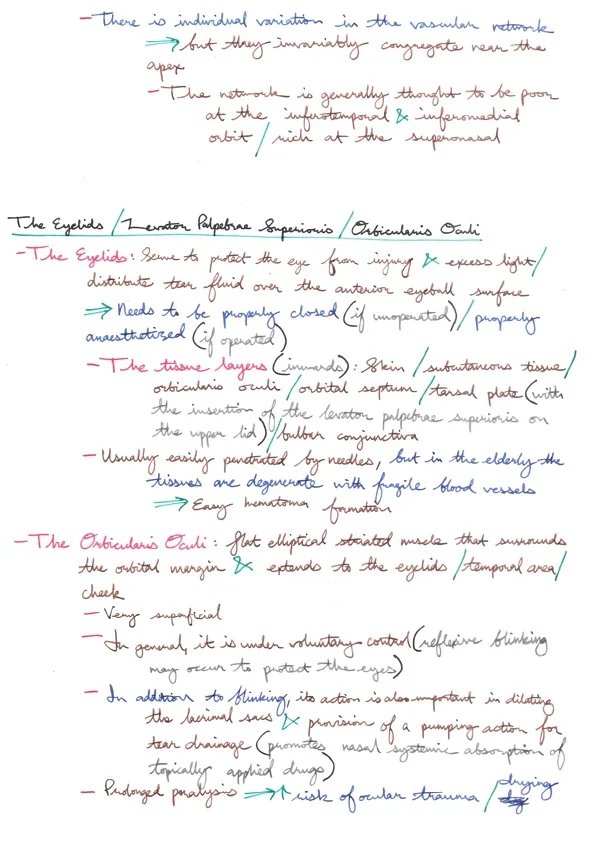 - There is individual variation in the vascular network
⇒ but they invariably congregate near the
apex
- The network is generally thought to be poor
at the inferotemporal & inferomedial
orbit / rich at the superonasal
The Eyelids / Levator Palpebrae Superioris / Orbicularis Oculi
- The Eyelids: Serve to protect the eye from injury & excess light /
distribute tear fluid over the anterior eyeball surface
⇒ Needs to be properly closed (if unoperated) / properly
anaesthetized (if operated)
- The tissue layers (inwards): Skin / subcutaneous tissue /
orbicularis oculi / orbital septum / tarsal plate (with
the insertion of the levator palpebrae superioris on
the upper lid) / bulbar conjunctiva
- Usually easily penetrated by needles, but in the elderly the
tissues are degenerate with fragile blood vessels
⇒ Easy hematoma formation
- The Orbicularis Oculi: flat elliptical striated muscle that surrounds
the orbital margin & extends to the eyelids / temporal area /
cheek
- Very superficial
- In general, it is under voluntary control (reflexive blinking
may occur to protect the eyes)
- In addition to blinking, its action is also important in dilating
the lacrimal sacs & provision of a pumping action for
tear drainage (promotes nasal systemic absorption of
topically applied drugs)
- Prolonged paralysis ⇒ ↑ risk of ocular trauma / drying